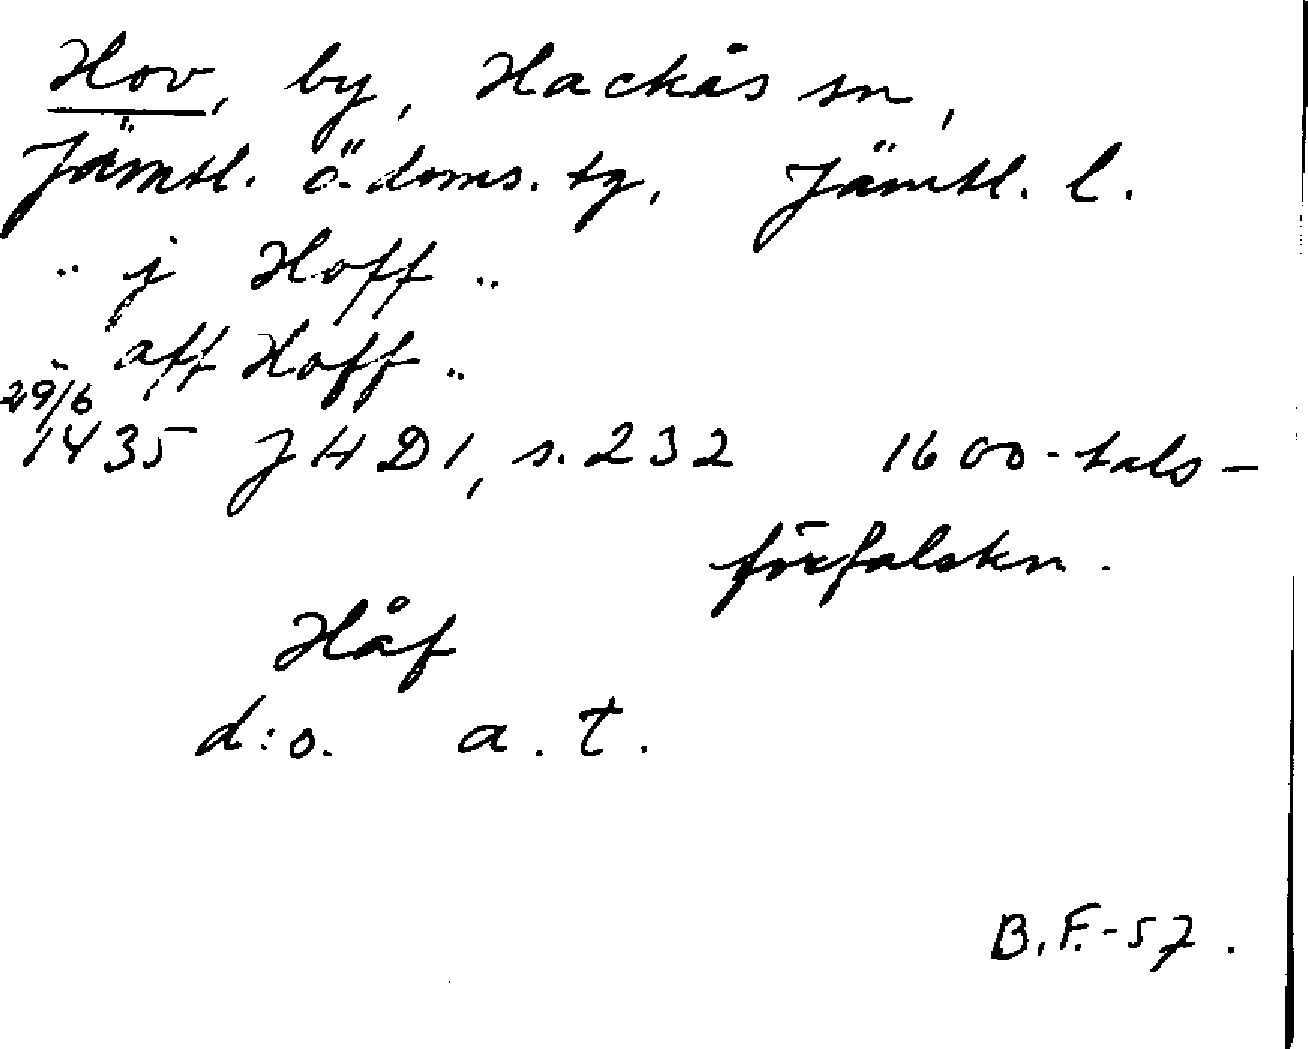 Hov, by, Hackås sn,
Jämtl. ö. doms. tg, Jämtl. l.
" j Hoff "
" aff Hoff "
29/6
1435 JHD1, s. 232 1600-tals-
förfalskn.
Håf
d:o. a. t.
B.F.-57.